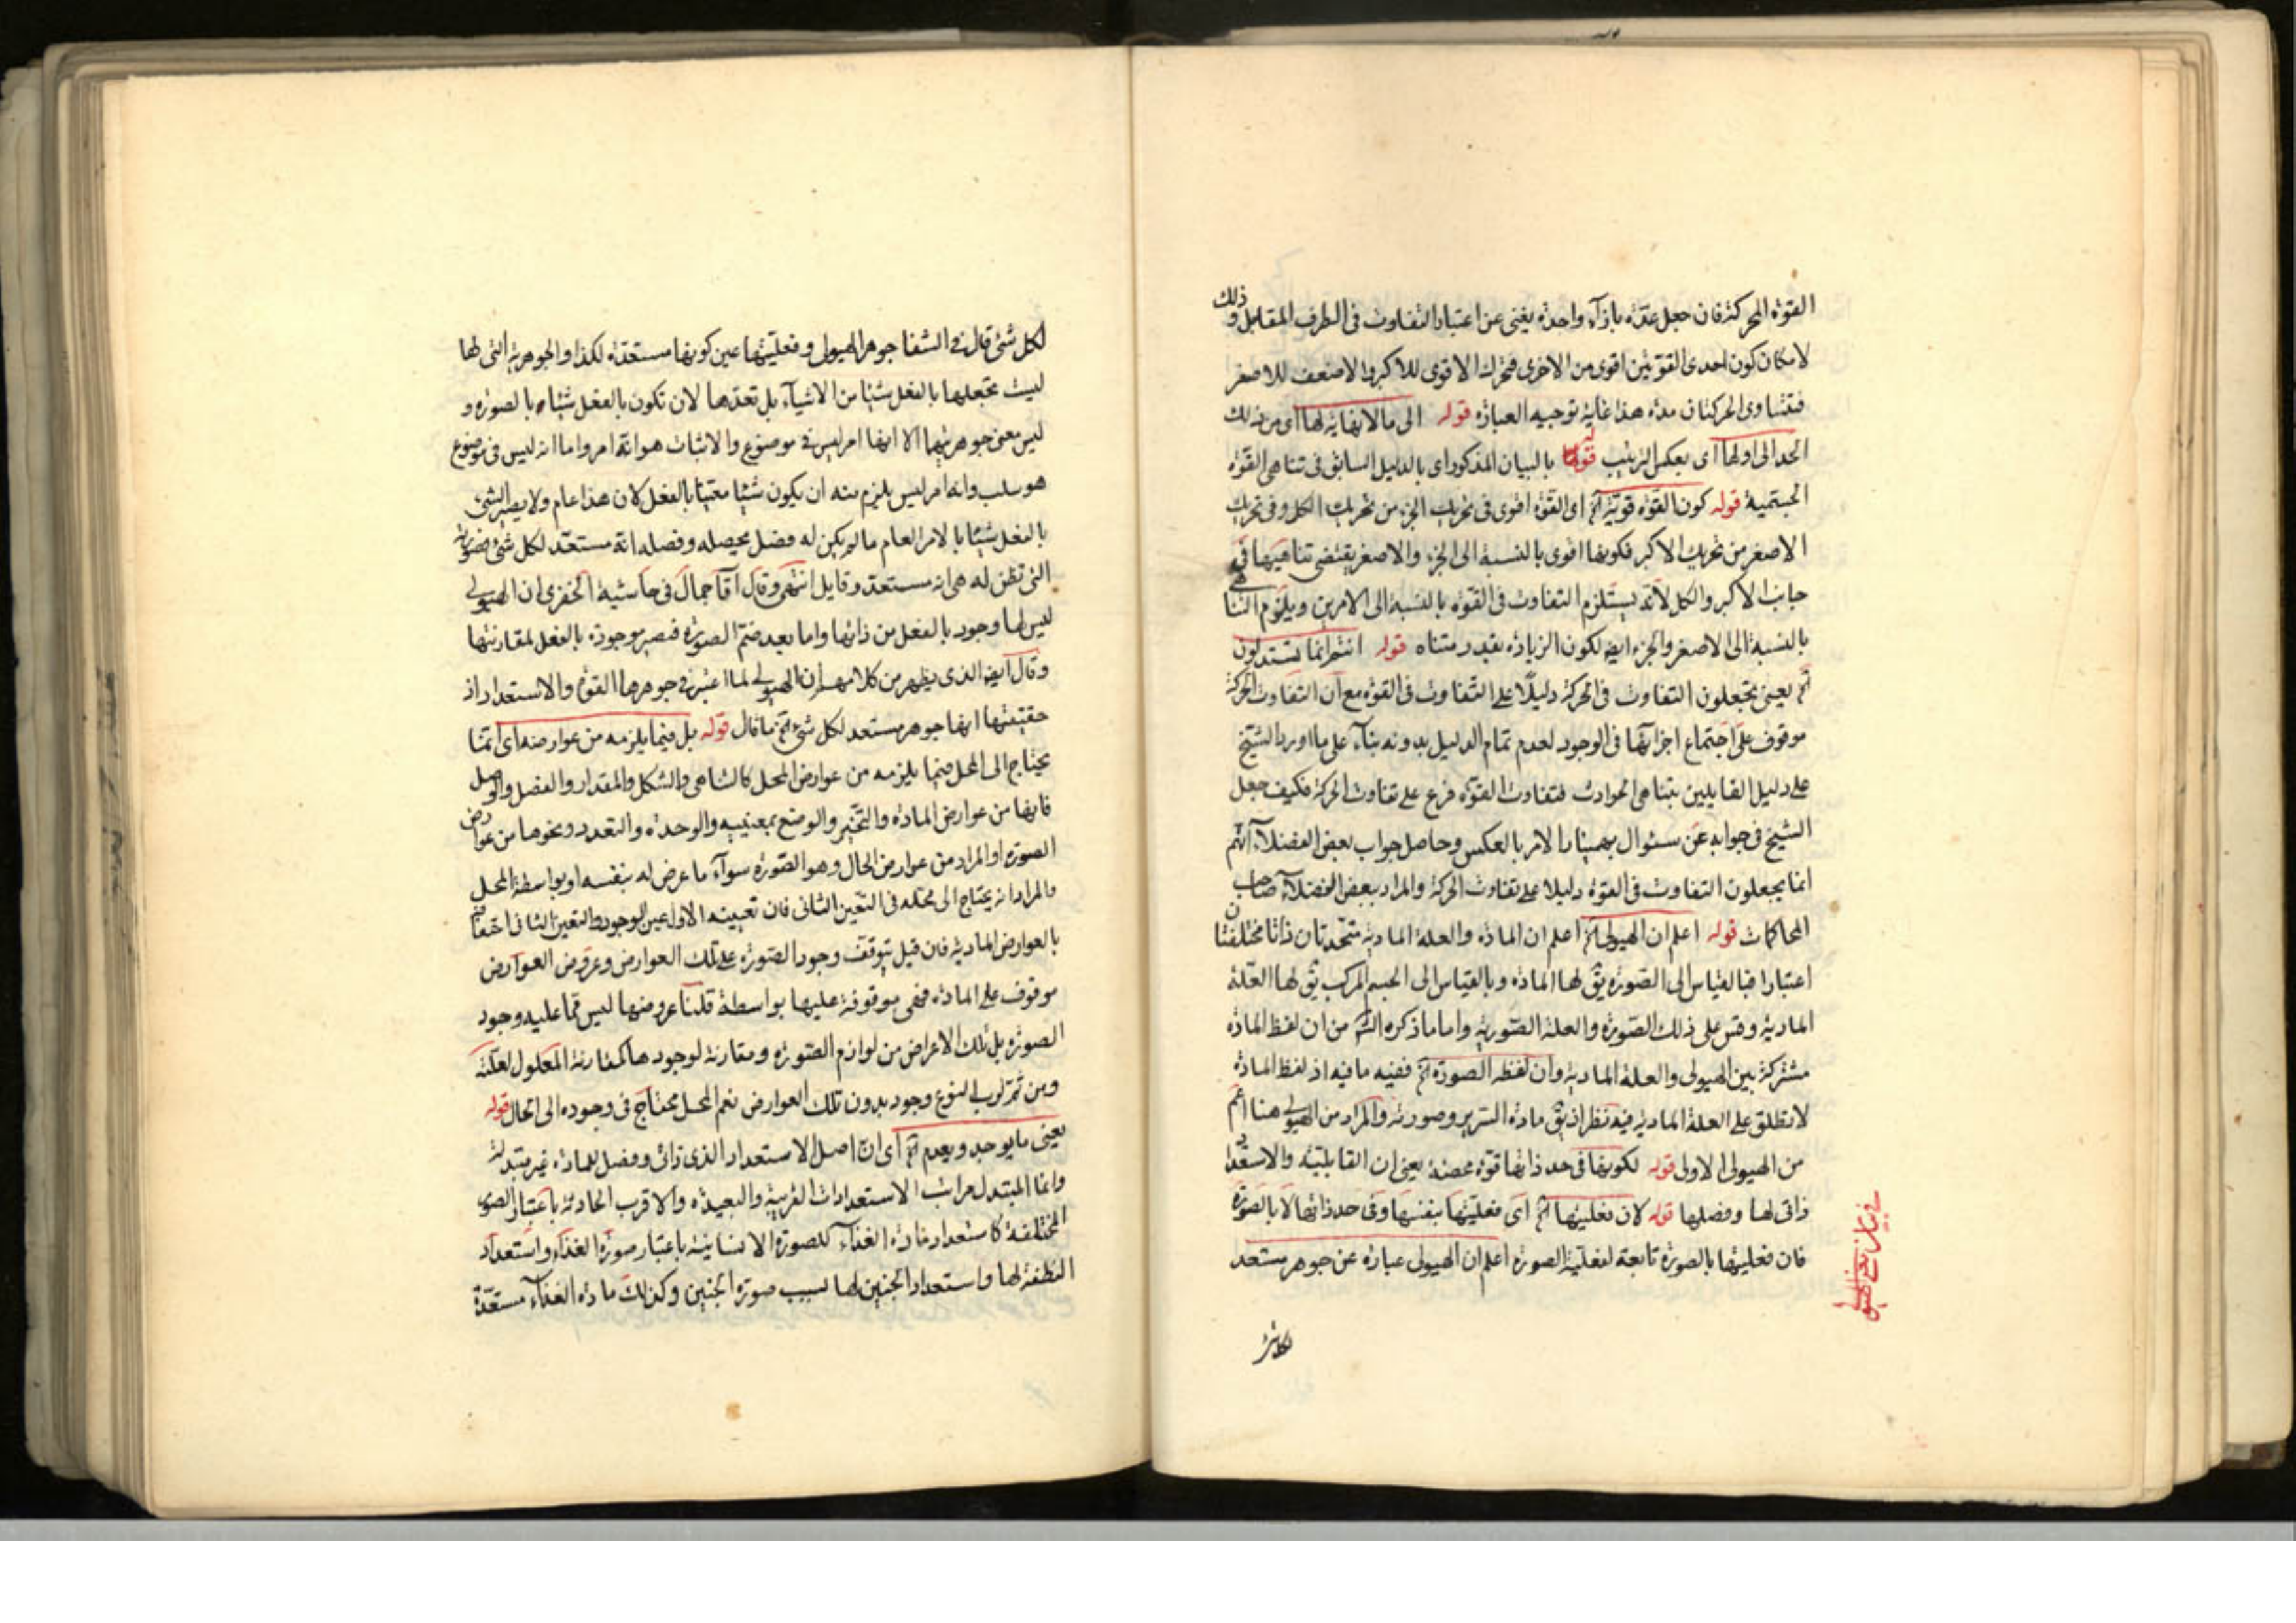 القوة المحركة فان جعل عدّة بازآء واحدة يغنى عن اعتبار التفاوت فى الطرف المقابل وذلك
لامكان كون احدى القوتين اقوى من الاخرى فتحرك الاقوى للاكبر والاضعف للاصغر
فتتساوى الحركتان مدة هذا غاية توجيه العبارة قوله الى ما لا نهاية لها اى من ذلك
الحد الى اولها اى بعكس الترتيب قوله بالبيان المذكور اى بالدليل السابق فى تناهى القوة
الجسمية قوله كون القوة قوية الخ اى القوة اقوى فى تحريك الجزء من تحريك الكل وفى تحريك
الاصغر من تحريك الاكبر فكونها اقوى بالنسبة الى الجزء والاصغر يقتضى تناهيها فى
جانب الاكبر والكل لانه يستلزم التفاوت فى القوة بالنسبة الى الامرين ويلزم التناهى
بالنسبة الى الاصغر والجزء ايضا لكون الزيادة بقدر متناه قوله انتم انما تستدلون
الخ يعنى تجعلون التفاوت فى الحركة دليلا على التفاوت فى القوة مع ان التفاوت الحركة
موقوف على اجتماع اجزائها فى الوجود لعدم تمام الدليل بدونه بناء على ما اورد الشيخ
على دليل القايلين بتناهى الحوادث فتفاوت القوة فرع على تفاوت الحركة فكيف جعل
الشيخ فى جوابه عن سئوال بهمنيار الامر بالعكس وحاصل جواب بعض الفضلاء انهم
انما يجعلون التفاوت فى القوة دليلا على تفاوت الحركة والمراد ببعض الفضلاء صاحب
المحاكمات قوله اعلم ان الهيولى الخ اعلم ان المادة والعلة المادية متحدتان ذاتا مختلفتان
اعتبارا فبالقياس الى الصورة يق لها المادة وبالقياس الى الجسم المركب يق لها العلة
المادية وقس على ذلك الصورة والعلة الصورية واما ما ذكره الشم من ان لفظ المادة
مشتركة بين الهيولى والعلة المادية وان لفظ الصورة الخ ففيه ما فيه اذ لفظ المادة
لا تطلق على العلة المادية فيه نظر اذ يق مادة السرير وصورته والمراد من الهيولى هنا اعم
من الهيولى الاولى قوله لكونها فى حد ذاتها قوة محضة يعنى ان القابلية والاستعداد
ذاتى لها وفصلها قوله لان فعليتها الخ اى فعليتها بنفسها وفى حد ذاتها لا بالصورة
فان فعليتها بالصورة تابعة لفعلية الصورة اعلم ان الهيولى عبارة عن جوهر مستعد
لكل شئ
لكل شئ قال فى الشفا جوهر الهيولى وفعليتها عين كونها مستعدة لكذا والجوهرية التى لها
ليست تجعلها بالفعل شيئا من الاشيآء بل تعدّها لان تكون بالفعل شيئا بالصورة و
ليس معنى جوهريتها الا انها امر ليس فى موضوع والاثبات هو انه امر واما انه ليس فى موضوع
هو سلب وانه امر ليس يلزم منه ان يكون شيئا معينا بالفعل لان هذا عام ولا يصير الشئ
بالفعل شيئا بالامر العام ما لم يكن له فصل يحصله وفصله انه مستعد لكل شئ وصورته
التى تظن له هى انه مستعد وقابل انتهى وقال آقا جمال فى حاشية الخفرى ان الهيولى
ليس لها وجود بالفعل من ذاتها واما بعد ضم الصورة فتصير موجودة بالفعل لمقارنتها
وقال ايضا الذى يظهر من كلامهم ان الهيولى لما اعتبر فى جوهرها القوة والاستعداد اذ
حقيقتها انها جوهر مستعد لكل شئ الخ ما قال قوله بل فيما يلزمه من عوارضه اى انما
يحتاج الى المحل فيما يلزمه من عوارض المحل كالتناهى والشكل والمقدار والفصل والوصل
فانها من عوارض المادة والتحيز والوضع بمعنييه والوحدة والتعدد ونحوها من عوارض
الصورة او المراد من عوارض الحال وهو الصورة سوآء ما عرض له بنفسه او بواسطة المحل
والمراد انه يحتاج الى محله فى التعين الثانى فان تعيينه الاول عين الوجود والتعين الثانى
بالعوارض المادية فان قيل يتوقف وجود الصورة على تلك العوارض وعروض العوارض
موقوف على المادة فهى موقوفة عليها بواسطة قلنا عروضها ليس مما عليه وجود
الصورة بل تلك الاعراض من لوازم الصورة ومقارنة لوجودها كمقارنة المعلول لعلته
ومن ثم وجود بدون تلك العوارض نعم المحل محتاج فى وجوده الى الحال قوله
يعنى ما يوجد ويعدم الخ اى ان اصل الاستعداد الذى ذاتى وفصل للمادة غير متبدلة
وانما المتبدل مراتب الاستعدادات القريبة والبعيدة والاقرب الحادثة باعتبار الصور
المختلفة كاستعداد مادة الغذآء للصورة الانسانية باعتبار صورة الغذآء واستعداد
النطفة لها واستعداد الجنين لها بسبب صورة الجنين وكذلك مادة الغذآء مستعدّة